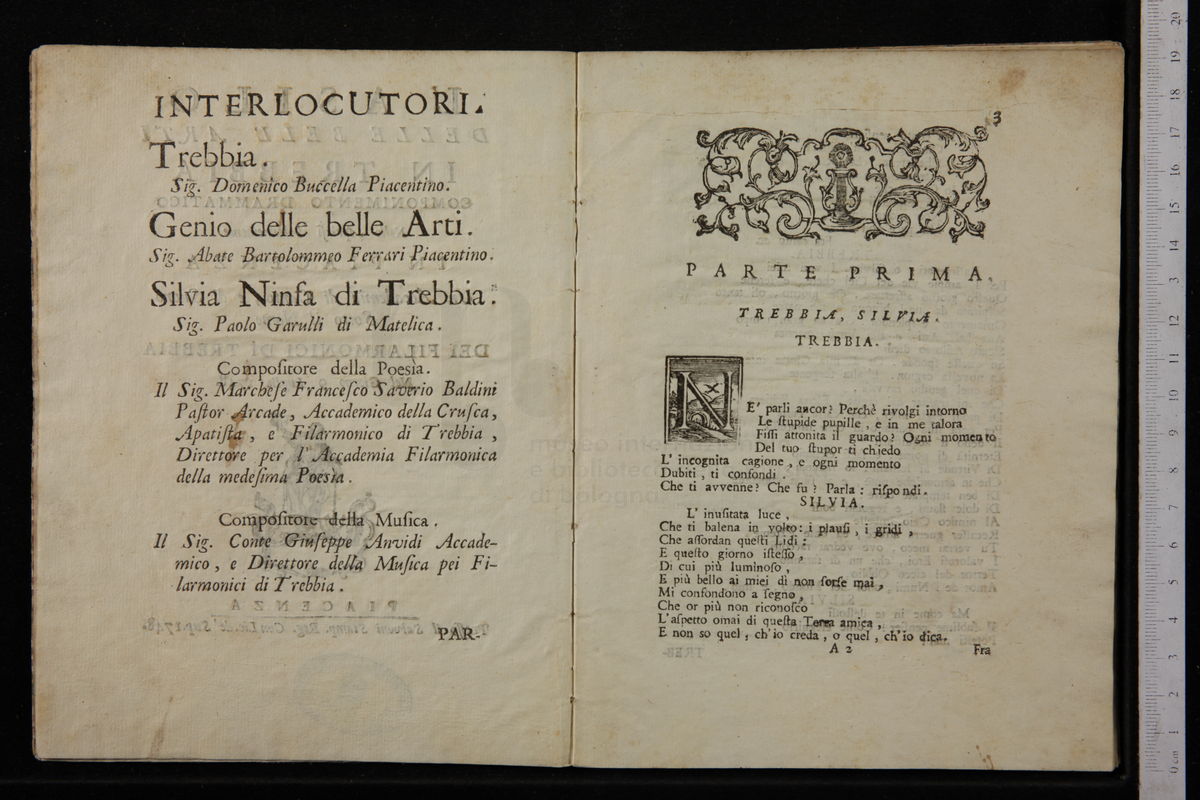 INTERLOCUTORI.
Trebbia.
Sig. Domenico Buccella Piacentino.
Genio delle belle Arti.
Sig. Abate Bartolommeo Ferrari Piacentino.
Silvia Ninfa di Trebbia.
Sig. Paolo Garulli di Matelica.
Compoſitore della Poesìa.
Il Sig. Marcheſe Franceſco Saverio Baldini
Paſtor Arcade, Accademico della Cruſca,
Apatiſta, e Filarmonico di Trebbia,
Direttore per l'Accademia Filarmonica
della medeſima Poesìa.
Compoſitore della Muſica.
Il Sig. Conte Giuſeppe Anvidi Accade-
mico, e Direttore della Muſica pei Fi-
larmonici di Trebbia.
PAR-
3
PARTE PRIMA.
TREBBIA, SILVIA.
TREBBIA.
NE' parli ancor? Perchè rivolgi intorno
Le ſtupide pupille, e in me talora
Fiſſi attonita il guardo? Ogni momento
Del tuo ſtupor ti chiedo
L' incognita cagione, e ogni momento
Dubiti, ti confondi.
Che ti avvenne? Che fu? Parla: riſpondi.
SILVIA.
L' inuſitata luce,
Che ti balena in volto: i plauſi, i gridi,
Che aſſordan queſti Lidi:
E queſto giorno iſteſſo,
Di cui più luminoſo,
E più bello ai miei dì non forſe mai,
Mi confondono a ſegno,
Che or più non riconoſco
L'aſpetto omai di queſta Terra amica,
E non so quel, ch'io creda, o quel, ch'io dica.
A 2
Fra
museo inte
e bibliotec
di bologna
0 cm 1 2 3 4 5 6 7 8 9 10 11 12 13 14 15 16 17 18 19 20